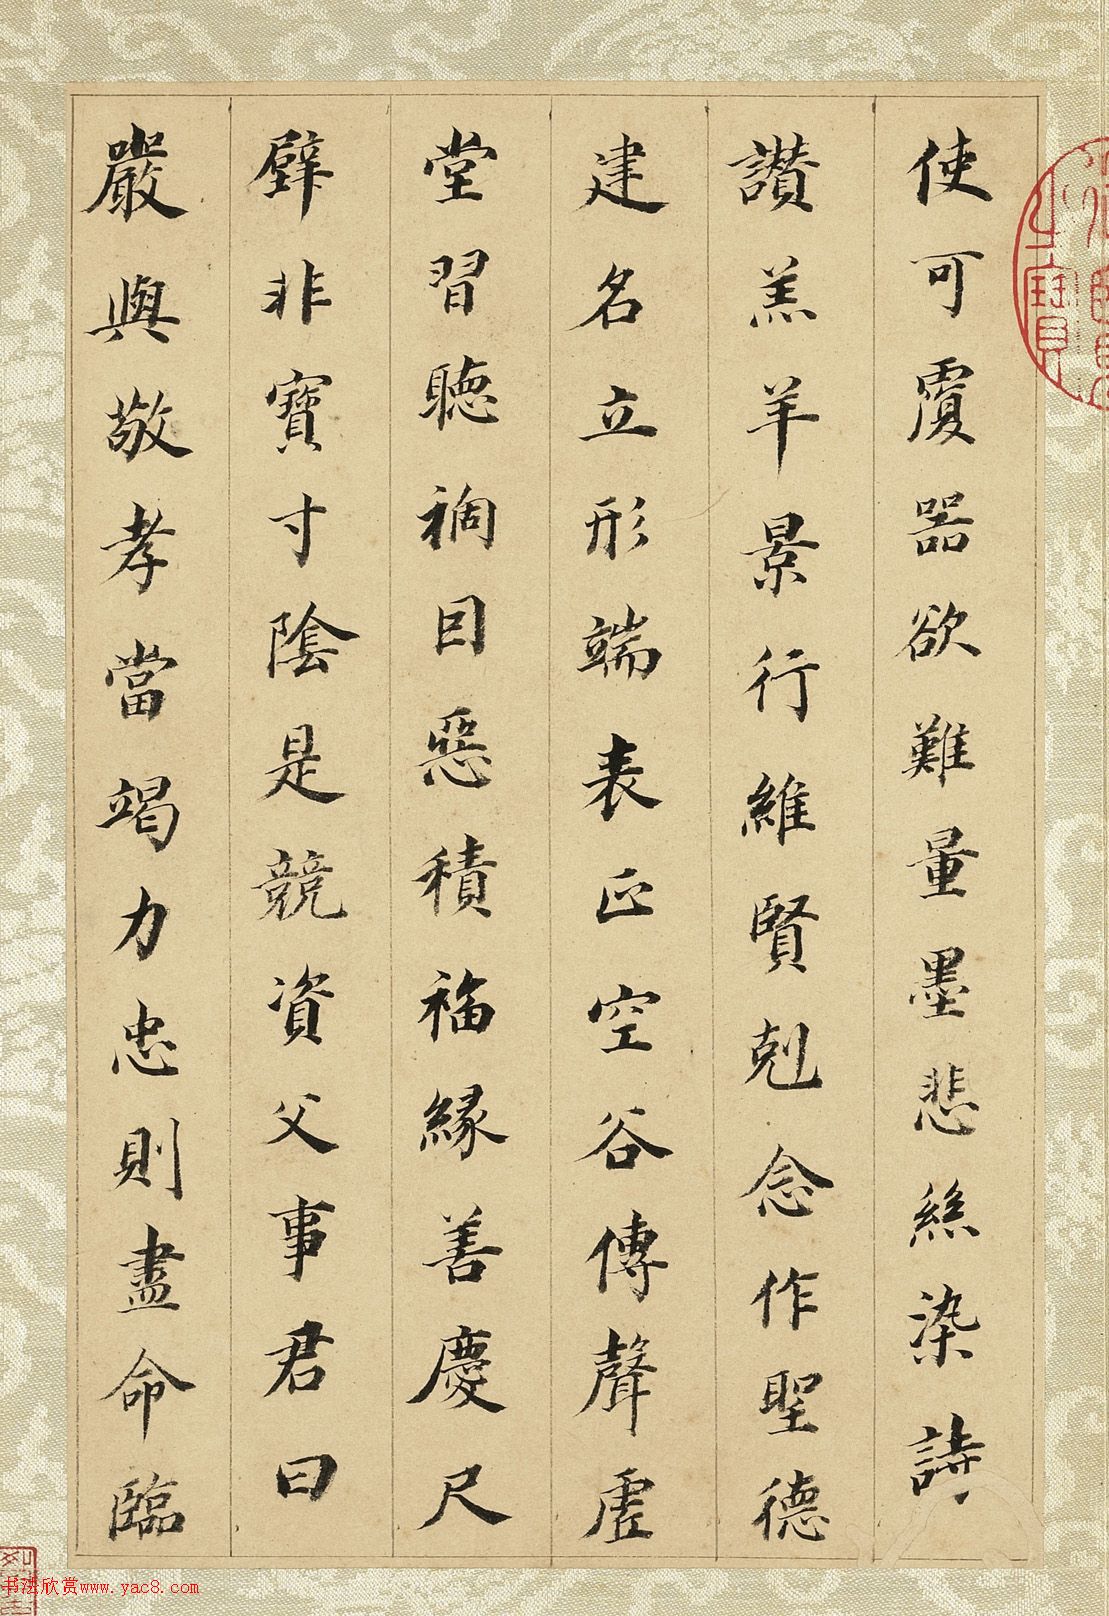 使可覆器欲難量墨悲絲染詩
讚羔羊景行維賢剋念作聖德
建名立形端表正空谷傳聲虛
堂習聽禍因惡積福緣善慶尺
璧非寶寸陰是競資父事君曰
嚴與敬孝當竭力忠則盡命臨
之寶
书法欣赏www.yac8.com